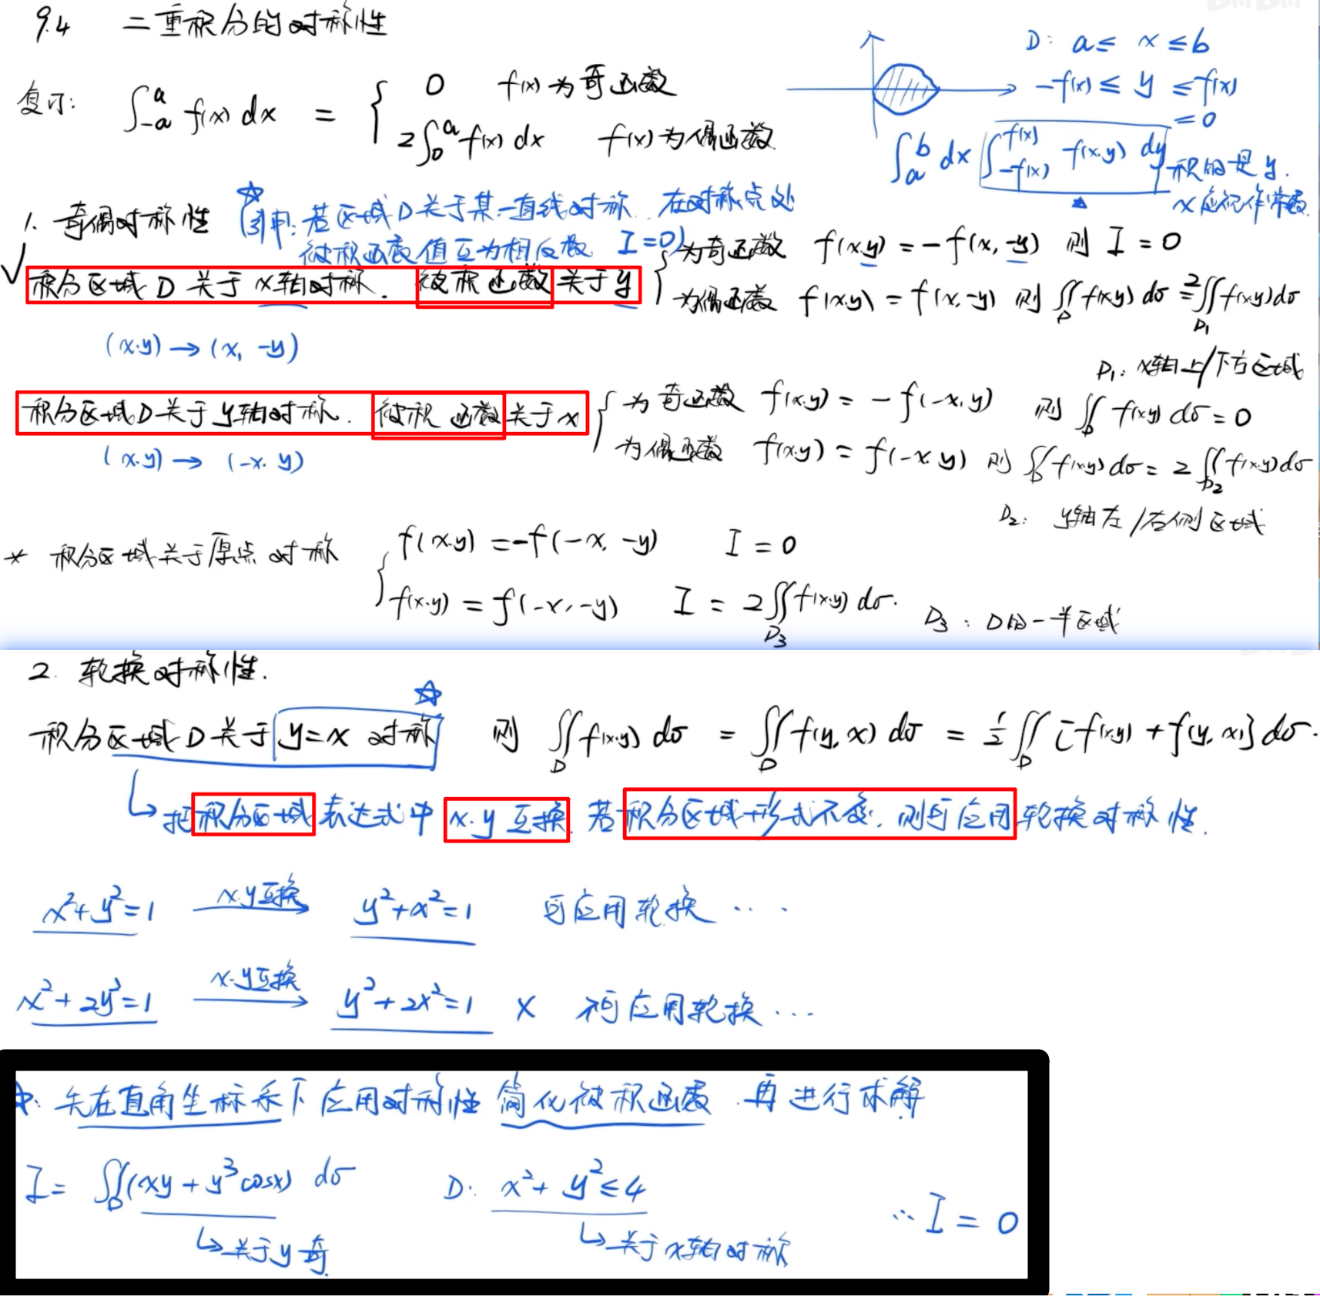 9.4 二重积分的对称性
复习: ∫_{-a}^{a} f(x) dx = { 0 f(x)为奇函数
2∫_0^a f(x) dx f(x)为偶函数
D: a ≤ x ≤ b
-f(x) ≤ y ≤ f(x)
= 0
∫_a^b dx ∫_{-f(x)}^{f(x)} f(x,y) dy 积的是y.
x应视作常数
1. 奇偶对称性 (引申: 若区域D关于某一直线对称. 在对称点处
被积函数值互为相反数. I=0)
积分区域D关于x轴对称. 被积函数关于y { 为奇函数 f(x,y) = -f(x,-y) 则 I = 0
为偶函数 f(x,y) = f(x,-y) 则 ∬_D f(x,y) dσ = 2∬_{D₁} f(x,y) dσ
(x,y) → (x, -y)
D₁: x轴上/下方区域
积分区域D关于y轴对称. 被积函数关于x { 为奇函数 f(x,y) = -f(-x,y) 则 ∬_D f(x,y) dσ = 0
为偶函数 f(x,y) = f(-x,y) 则 ∬_D f(x,y) dσ = 2∬_{D₂} f(x,y) dσ
(x,y) → (-x, y)
D₂: y轴左/右侧区域
* 积分区域关于原点对称 { f(x,y) = -f(-x,-y) I = 0
f(x,y) = f(-x,-y) I = 2∬_{D₃} f(x,y) dσ. D₃: D的一半区域
2. 轮换对称性.
积分区域D关于 y=x 对称 则 ∬_D f(x,y) dσ = ∬_D f(y,x) dσ = ½∬_D [f(x,y) + f(y,x)] dσ.
↳ 把积分区域表达式中 x.y 互换. 若积分区域形式不变. 则可应用轮换对称性.
x²+y²=1 x.y互换 → y²+x²=1 可应用轮换 ...
x²+2y²=1 x.y互换 → y²+2x²=1 × 不可应用轮换 ...
先在直角坐标系下应用对称性简化被积函数 再进行求解
I = ∬_D (xy + y³cosx) dσ D: x²+y² ≤ 4 ∴ I = 0
↳ 关于y奇 ↳ 关于x轴对称